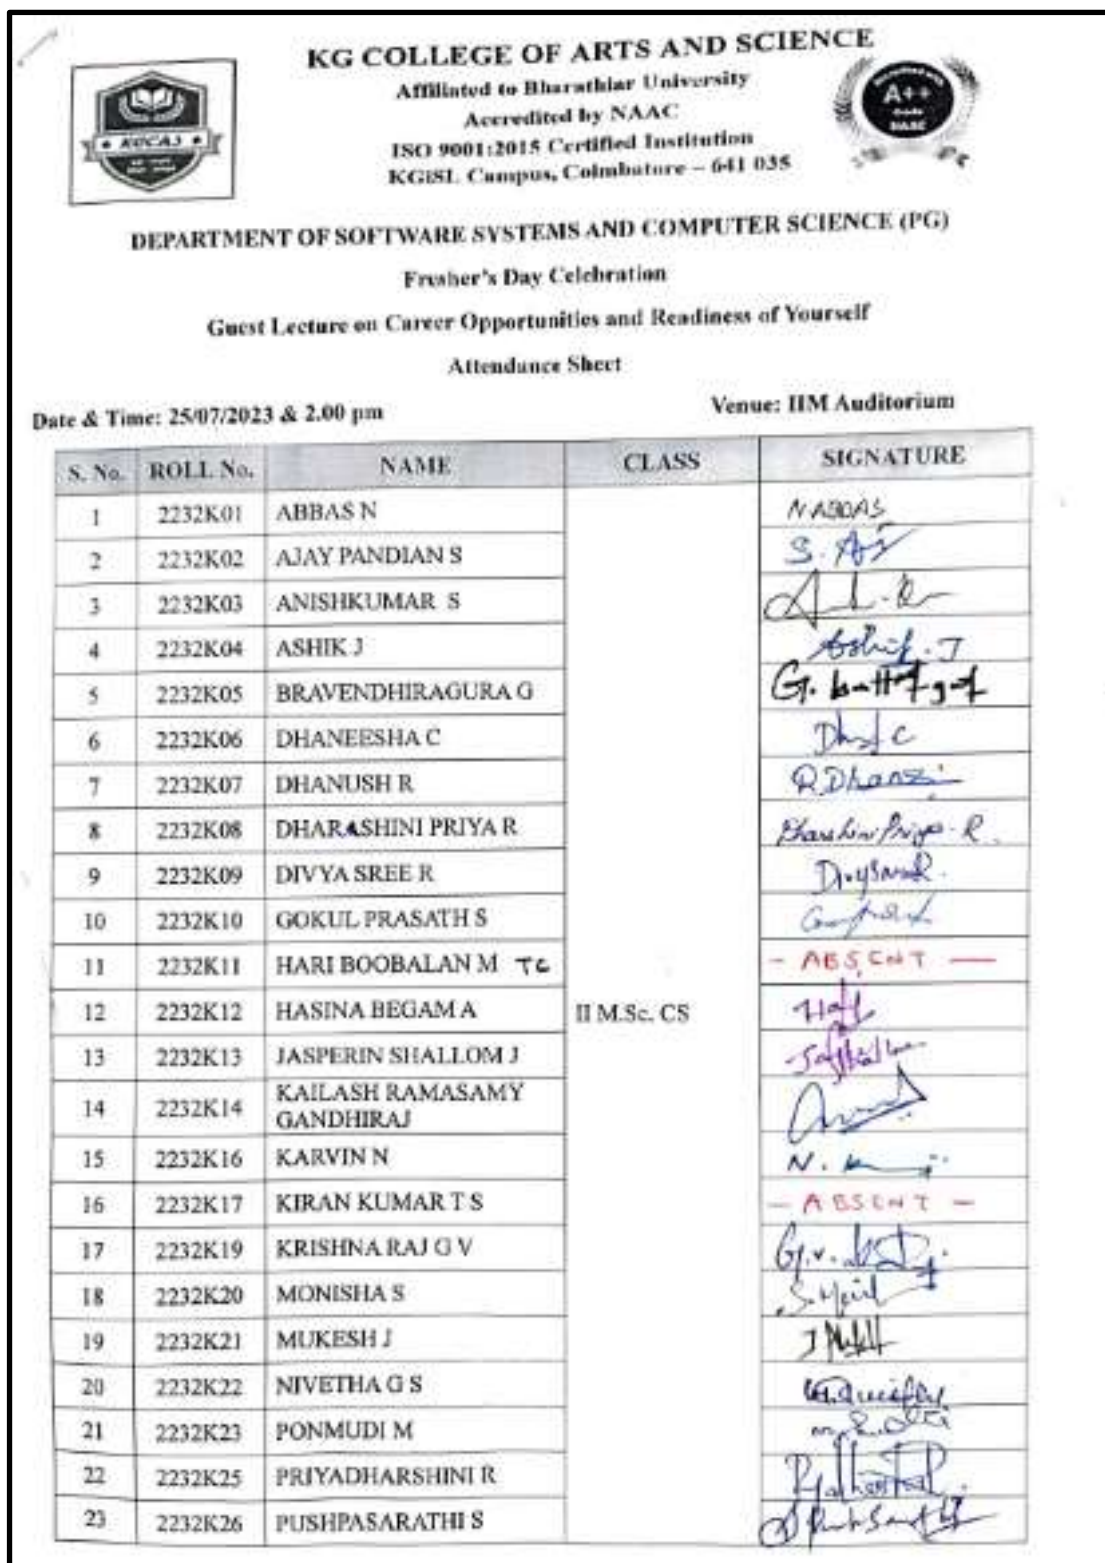 KG COLLEGE OF ARTS AND SCIENCE
Affiliated to Bharathiar University
Accredited by NAAC
ISO 9001:2015 Certified Institution
KGiSL Campus, Coimbatore – 641 035
KGCAS
A++
Grade
NAAC
DEPARTMENT OF SOFTWARE SYSTEMS AND COMPUTER SCIENCE (PG)
Fresher's Day Celebration
Guest Lecture on Career Opportunities and Readiness of Yourself
Attendance Sheet
Date & Time: 25/07/2023 & 2.00 pm Venue: IIM Auditorium
S. No. ROLL No. NAME CLASS SIGNATURE
1 2232K01 ABBAS N N ABBAS
2 2232K02 AJAY PANDIAN S
3 2232K03 ANISHKUMAR S
4 2232K04 ASHIK J Ashik. J
5 2232K05 BRAVENDHIRAGURA G
6 2232K06 DHANEESHA C
7 2232K07 DHANUSH R
8 2232K08 DHARASHINI PRIYA R Dharshini Priya. R
9 2232K09 DIVYA SREE R
10 2232K10 GOKUL PRASATH S
11 2232K11 HARI BOOBALAN M TC - ABSENT -
12 2232K12 HASINA BEGAM A II M.Sc. CS
13 2232K13 JASPERIN SHALLOM J
14 2232K14 KAILASH RAMASAMY
GANDHIRAJ
15 2232K16 KARVIN N
16 2232K17 KIRAN KUMAR T S - ABSENT -
17 2232K19 KRISHNA RAJ G V
18 2232K20 MONISHA S
19 2232K21 MUKESH J
20 2232K22 NIVETHA G S
21 2232K23 PONMUDI M
22 2232K25 PRIYADHARSHINI R
23 2232K26 PUSHPASARATHI S